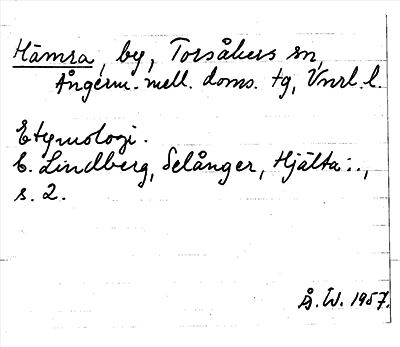 Hämra, by, Torsåkers sn,
Ångerm. mell. doms. tg, Vnrl. l.
Etymologi.
C. Lindberg, Selånger, Hjälta:..,
s. 2.
Å. W. 1957.